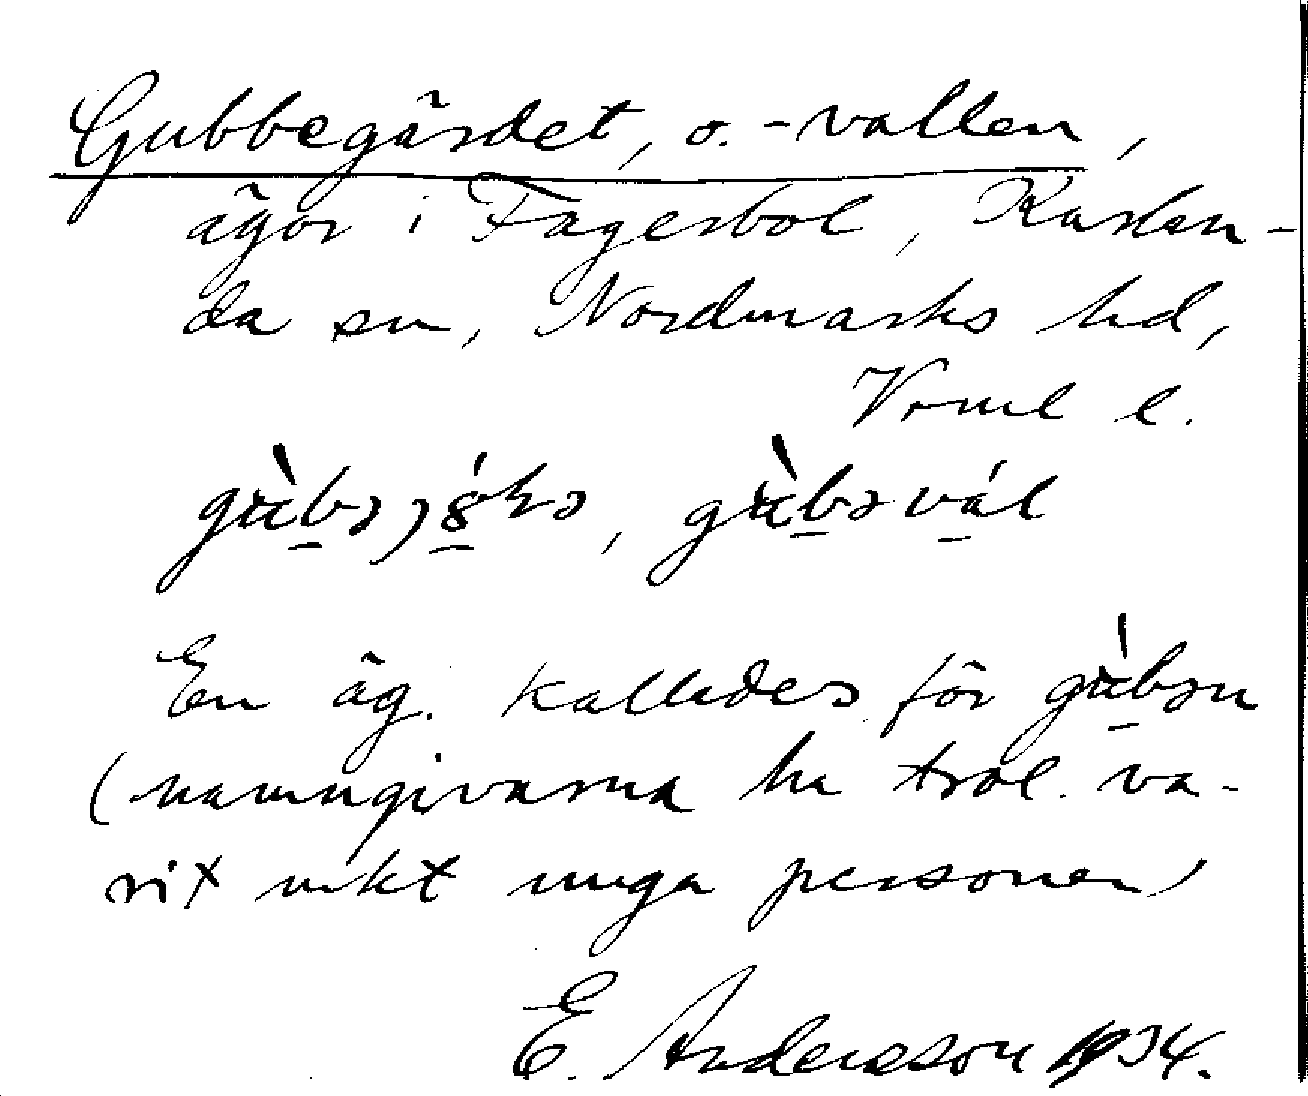 Gubbegärdet, o. -vallen,
ägor i Fagerbol, Karlan-
da sn, Nordmarks hd,
Vrml l.
En äg. kallades för
(namngivarna ha trol. va-
rit mkt unga personer)
E. Andersson 1934.